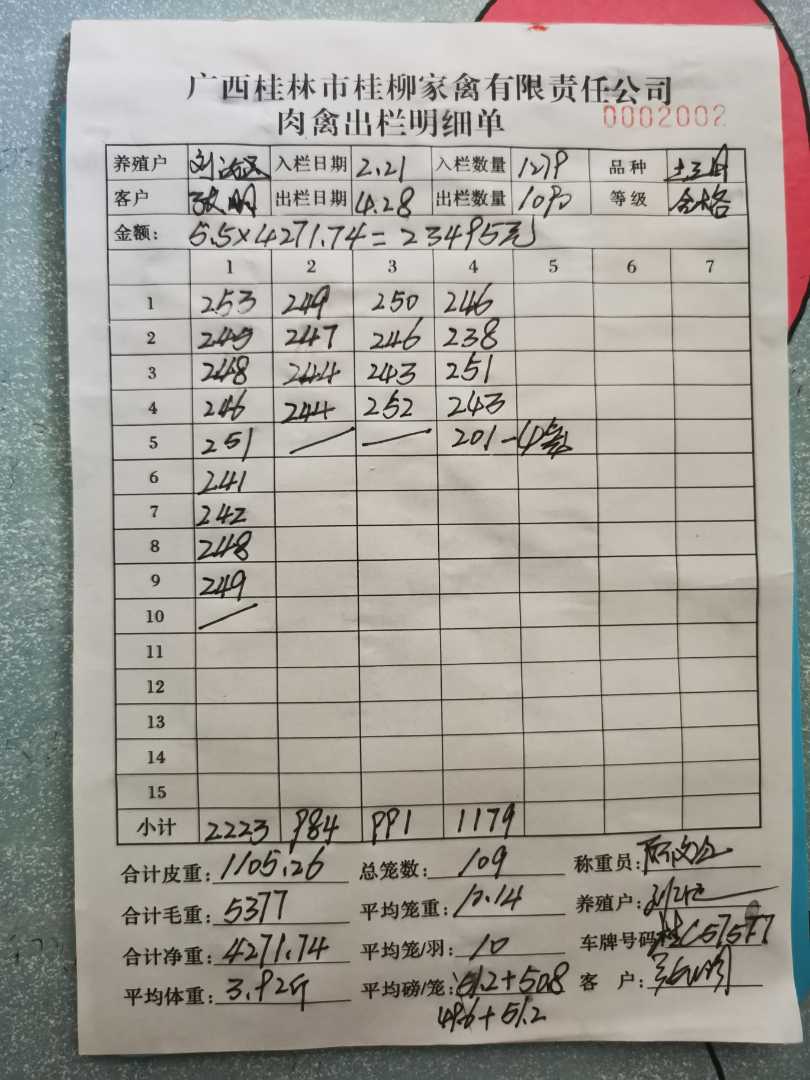 广西桂林市桂柳家禽有限责任公司
肉禽出栏明细单 0002002
养殖户 入栏日期 2.21 入栏数量 1279 品种
客户 张明 出栏日期 4.28 出栏数量 1090 等级 合格
金额: 5.5×4271.74=23495元
1 2 3 4 5 6 7
1 253 249 250 246
2 245 247 246 238
3 248 244 243 251
4 246 244 252 243
5 251 201-4
6 241
7 242
8 248
9 249
10
11
12
13
14
15
小计 2223 984 991 1179
合计皮重: 1105.26 总笼数: 109 称重员:
合计毛重: 5377 平均笼重: 10.14 养殖户:
合计净重: 4271.74 平均笼/羽: 10 车牌号码 桂C57577
平均体重: 3.92斤 平均磅/笼: 51.2+50.8 客 户:
49.6+51.2